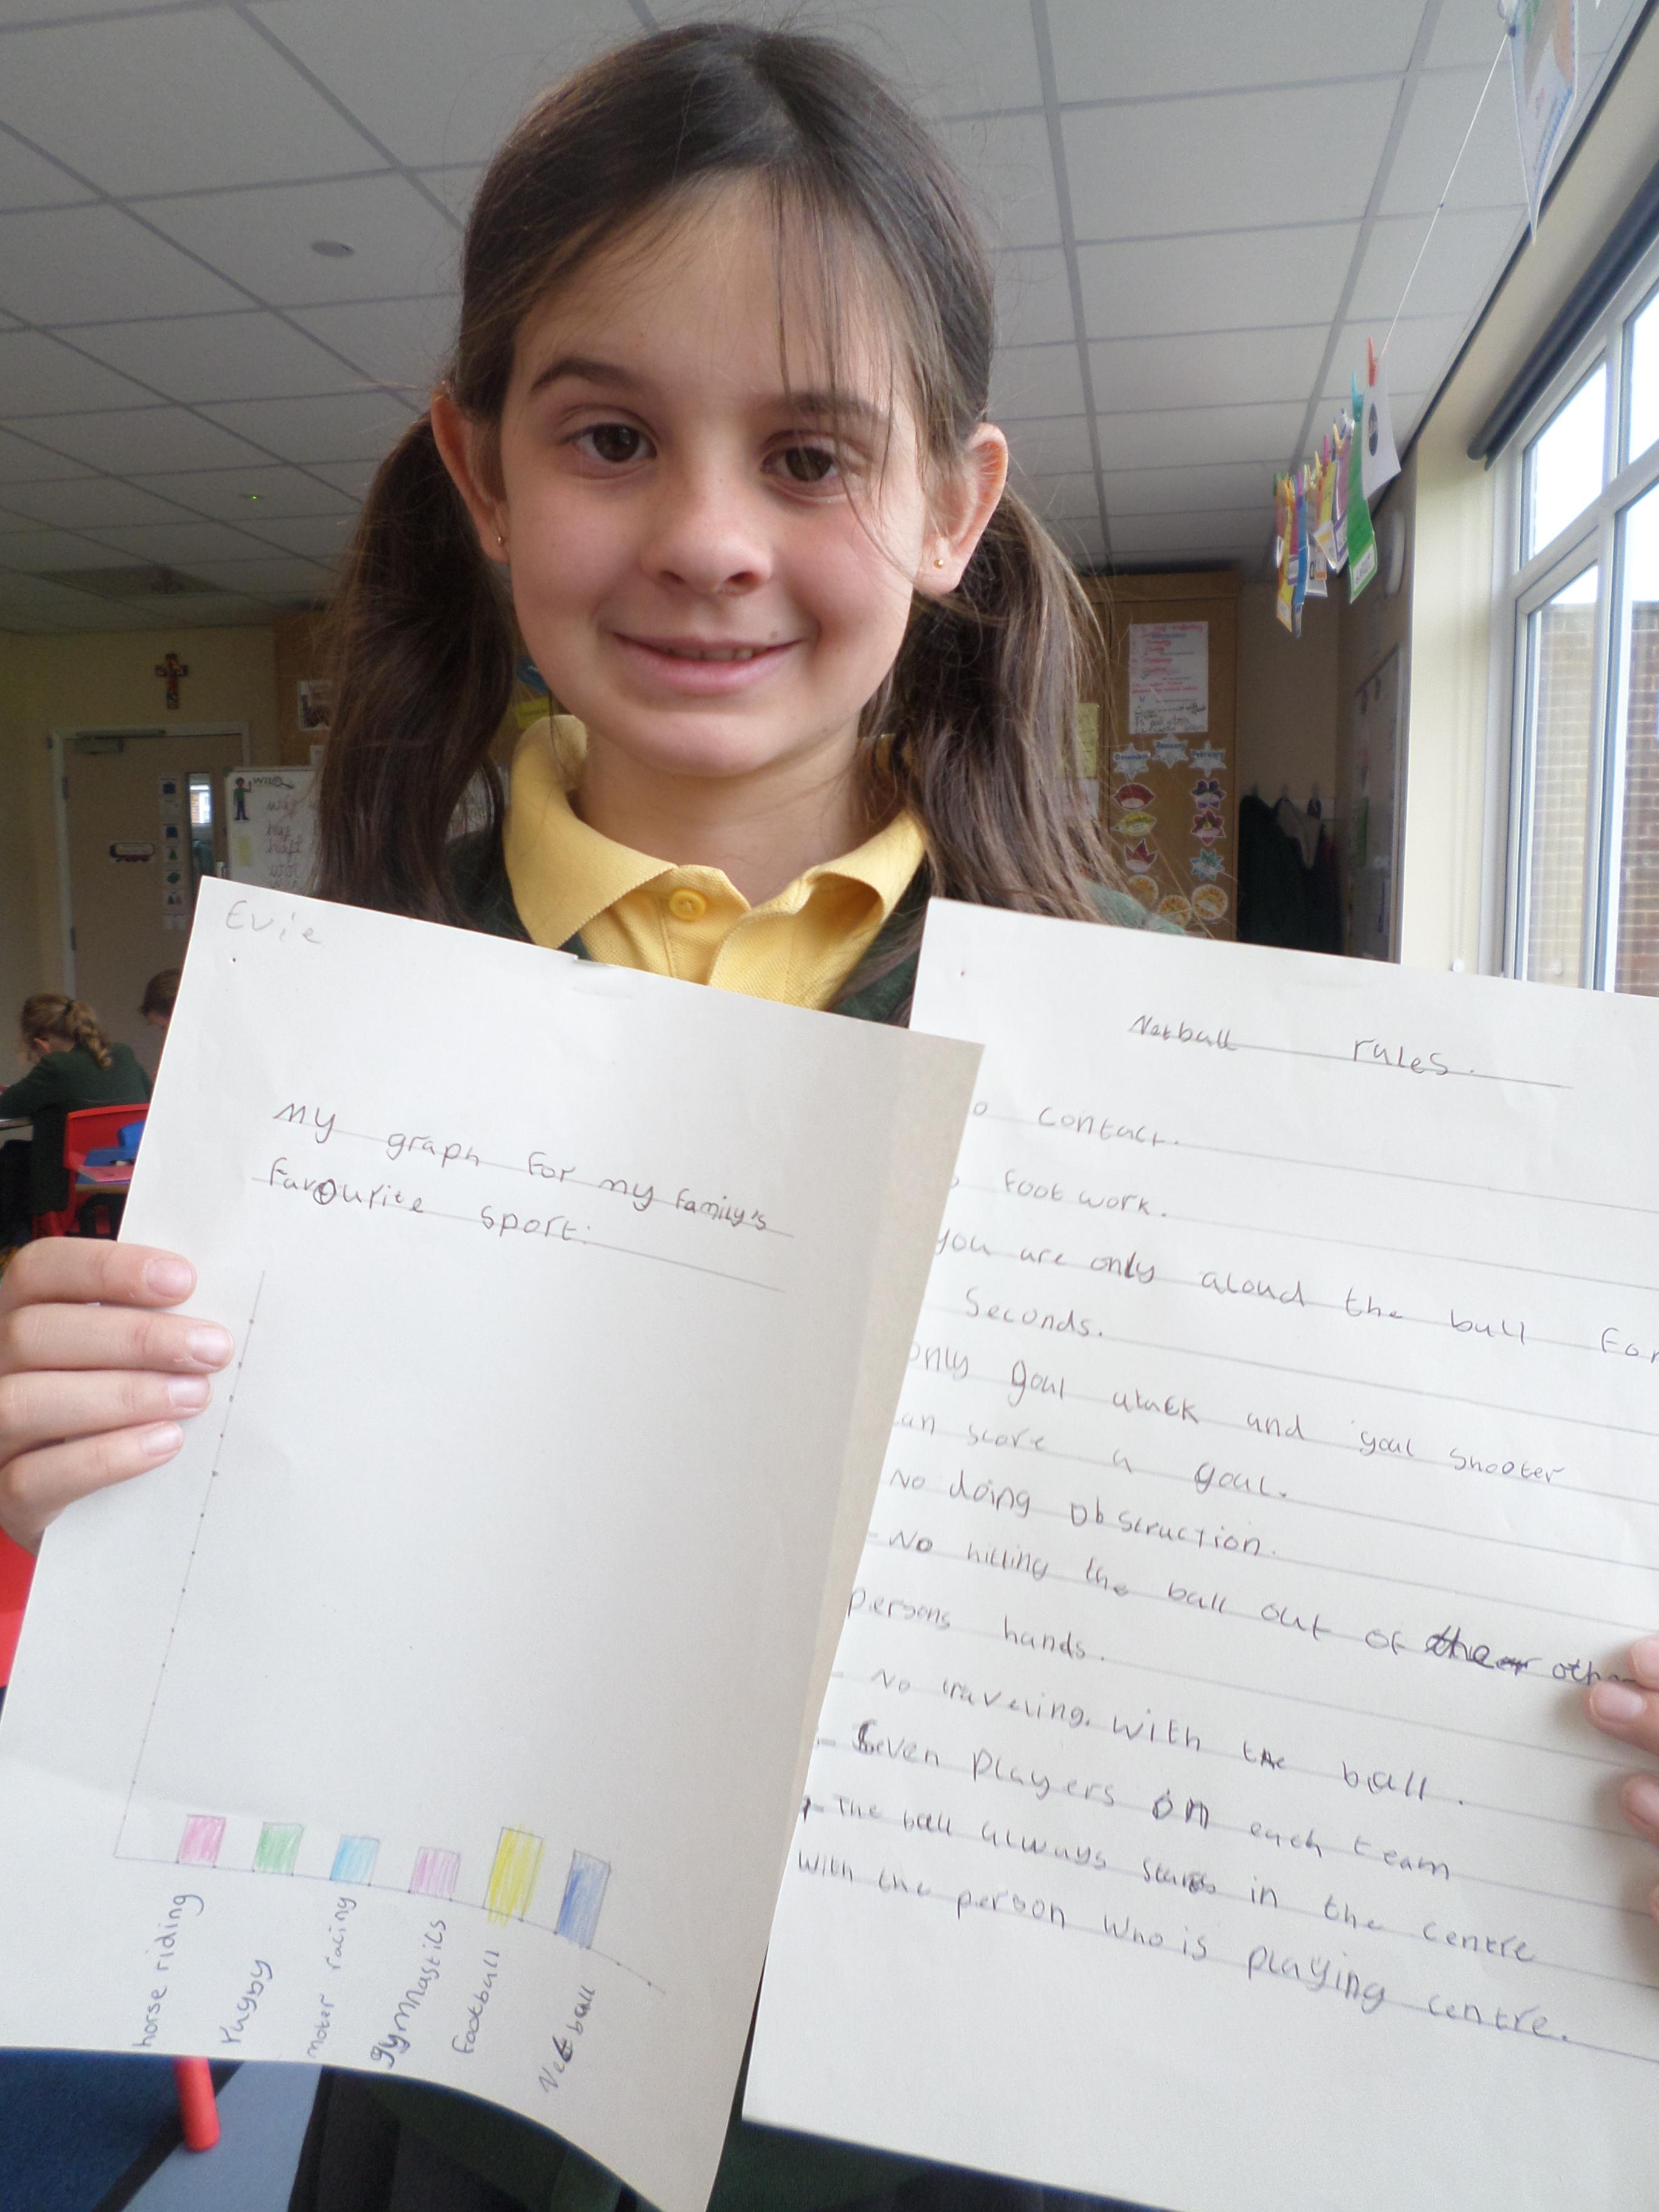 Evie
My graph for my family's
favourite sport.
horse riding
rugby
moter racing
gymnastics
football
Netball
Netball rules.
contact.
foot work.
you are only aloud the ball for
Seconds.
only goal attack and goal shooter
score a goal.
No doing obstruction.
- No hitting the ball out of
persons hands.
- No traveling. with the ball.
- Seven players on each team
- The ball always starts in the centre
with the person who is playing centre.